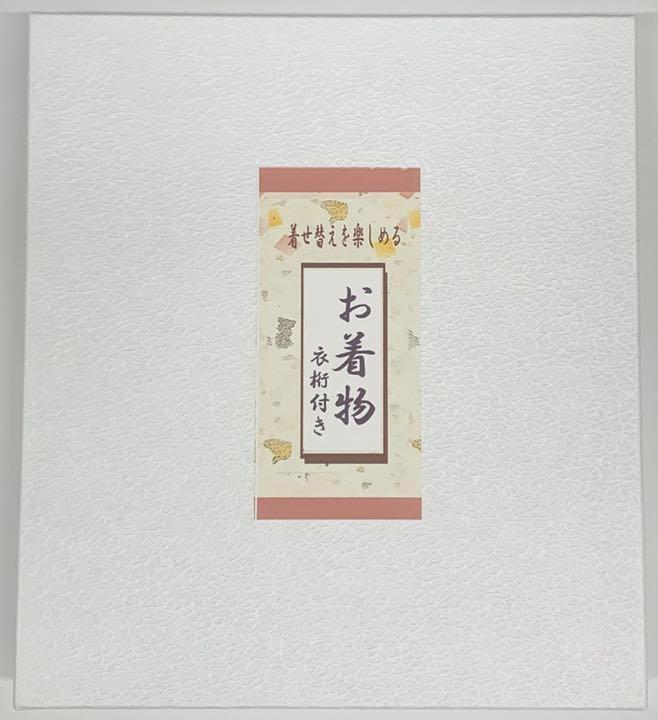 着せ替えを楽しめる
お着物
衣桁付き